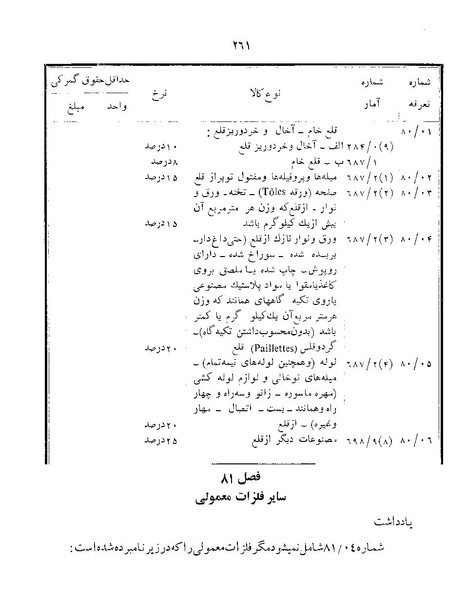 ۲۶۱
شماره شماره نوع کالا نرخ حداقل حقوق گمرکی
تعرفه آمار واحد مبلغ
۸۰/۰۱ قلع خام ـ آخال و خرده‌ریز قلع :
۲۸۴/۰(۹) الف ـ آخال و خرده‌ریز قلع ۱۰درصد
۶۸۷/۱ ب ـ قلع خام ۸درصد
۸۰/۰۲ ۶۸۷/۲(۱) میله‌ها و پروفیله‌ها و مفتول توپر از قلع ۱۵درصد
۸۰/۰۳ ۶۸۷/۲(۲) صفحه (ورقه Tôles) ـ تخته ـ ورق و
نوار ـ از قلع که وزن هر مترمربع آن
بیش از یک کیلوگرم باشد ۱۵درصد
۸۰/۰۴ ۶۸۷/۲(۳) ورق و نوار نازک از قلع (حتی داغ‌دار ـ
بریده شده ـ سوراخ شده ـ دارای
روپوش ـ چاپ شده یا ملصق بروی
کاغذ یا مقوا یا مواد پلاستیک مصنوعی
یا روی تکیه گاههای همانند که وزن
هر متر مربع آن یک کیلو گرم یا کمتر
باشد (بدون محسوب داشتن تکیه‌گاه) ـ
گرد و فلس (Paillettes) قلع ۲۰درصد
۸۰/۰۵ ۶۸۷/۲(۴) لوله (و همچنین لوله‌های نیمه‌تمام) ـ
میله‌های توخالی و لوازم لوله کشی
(مهره ماسوره ـ زانو و سه‌راه و چهار
راه و همانند ـ بست ـ اتصال ـ مهار
و غیره) ـ از قلع ۲۰درصد
۸۰/۰۶ ۶۹۸/۹(۸) مصنوعات دیگر از قلع ۲۵درصد
فصل ۸۱
سایر فلزات معمولی
یادداشت
شماره ۸۱/۰۴ شامل نمیشود مگر فلزات معمولی را که در زیر نامبرده شده است :